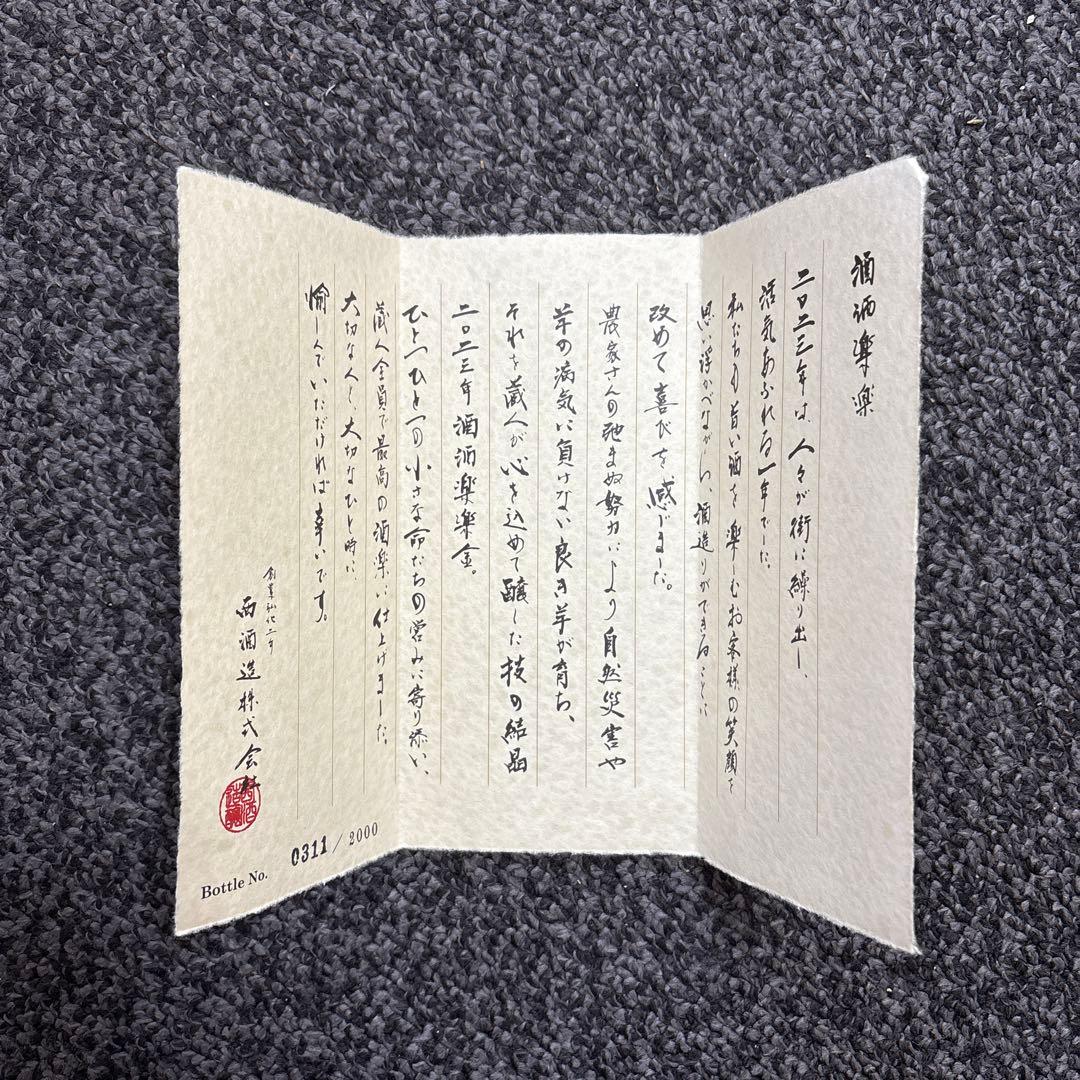 酒酒楽楽
二〇二三年は、人々が街に繰り出し、
活気あふれる一年でした。
私たちも旨い酒を楽しむお客様の笑顔を
思い浮かべながら、酒造りができることに
改めて喜びを感じました。
農家さんの弛まぬ努力により自然災害や
芋の病気に負けない良き芋が育ち、
それを蔵人が心を込めて醸した技の結晶
二〇二三年 酒酒楽楽金。
ひとつひとつの小さな命たちの営みに寄り添い、
蔵人全員で最高の酒楽に仕上げました。
大切な人と、大切なひと時に
愉しんでいただければ幸いです。
創業弘化二年
西酒造株式会社
Bottle No. 0311 / 2000